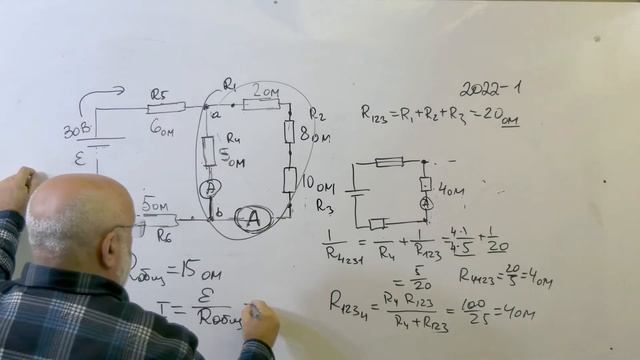 2022-1
R₁₂₃ = R₁ + R₂ + R₃ = 20 ом
30В
ε
R5
6 ом
a
R₁
2 ом
R₂
8 ом
R4
5 ом
A
10 ом
R₃
b
A
5 ом
R6
4 ом
A
1/R₄₂₃₁ = 1/R₄ + 1/R₁₂₃ = 4·1/4·5 + 1/20
= 5/20
R₄₁₂₃ = 20/5 = 4 ом
R₁₂₃₄ = R₄ R₁₂₃ / R₄ + R₁₂₃ = 100/25 = 4 ом
Rобщ = 15 ом
I = ε / Rобщ =